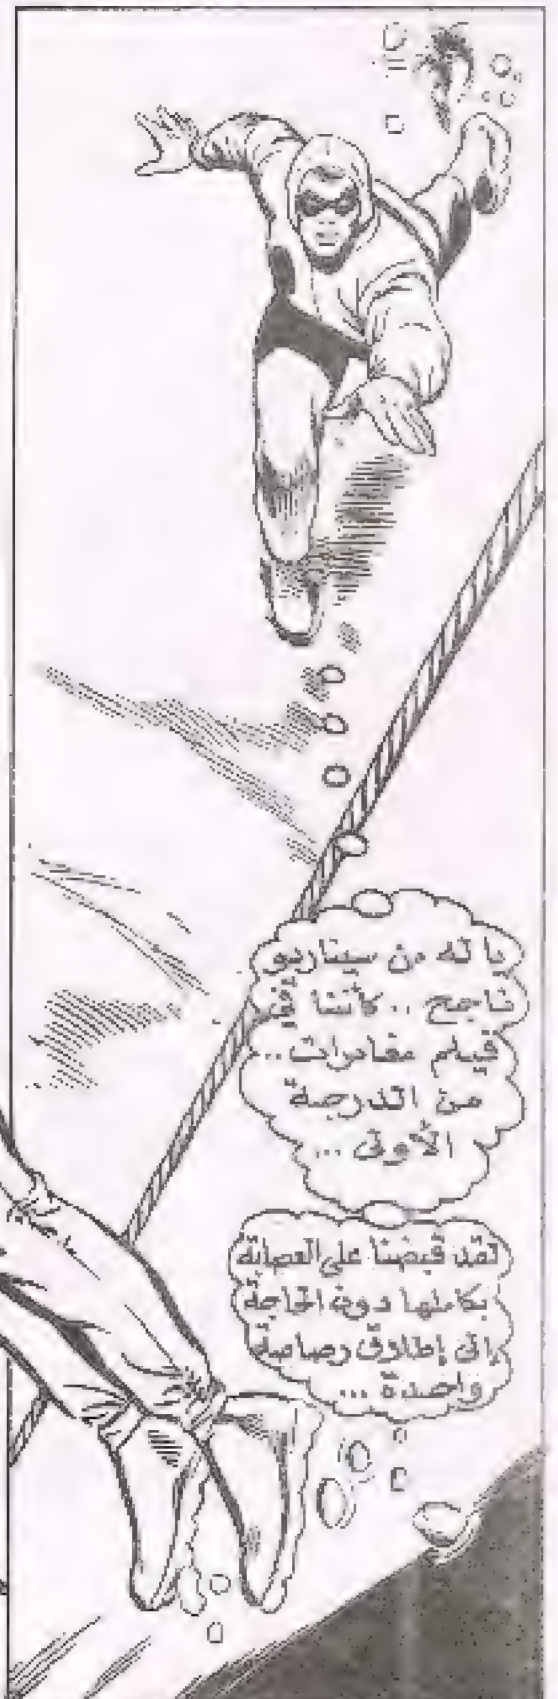 يا له من سيناريو
ناجح .. كأننا في
فيلم مغامرات ..
من الدرجة
الأولى ...
لقد قبضنا على العصابة
بكاملها دون الحاجة
إلى إطلاق رصاصة
واحدة ...